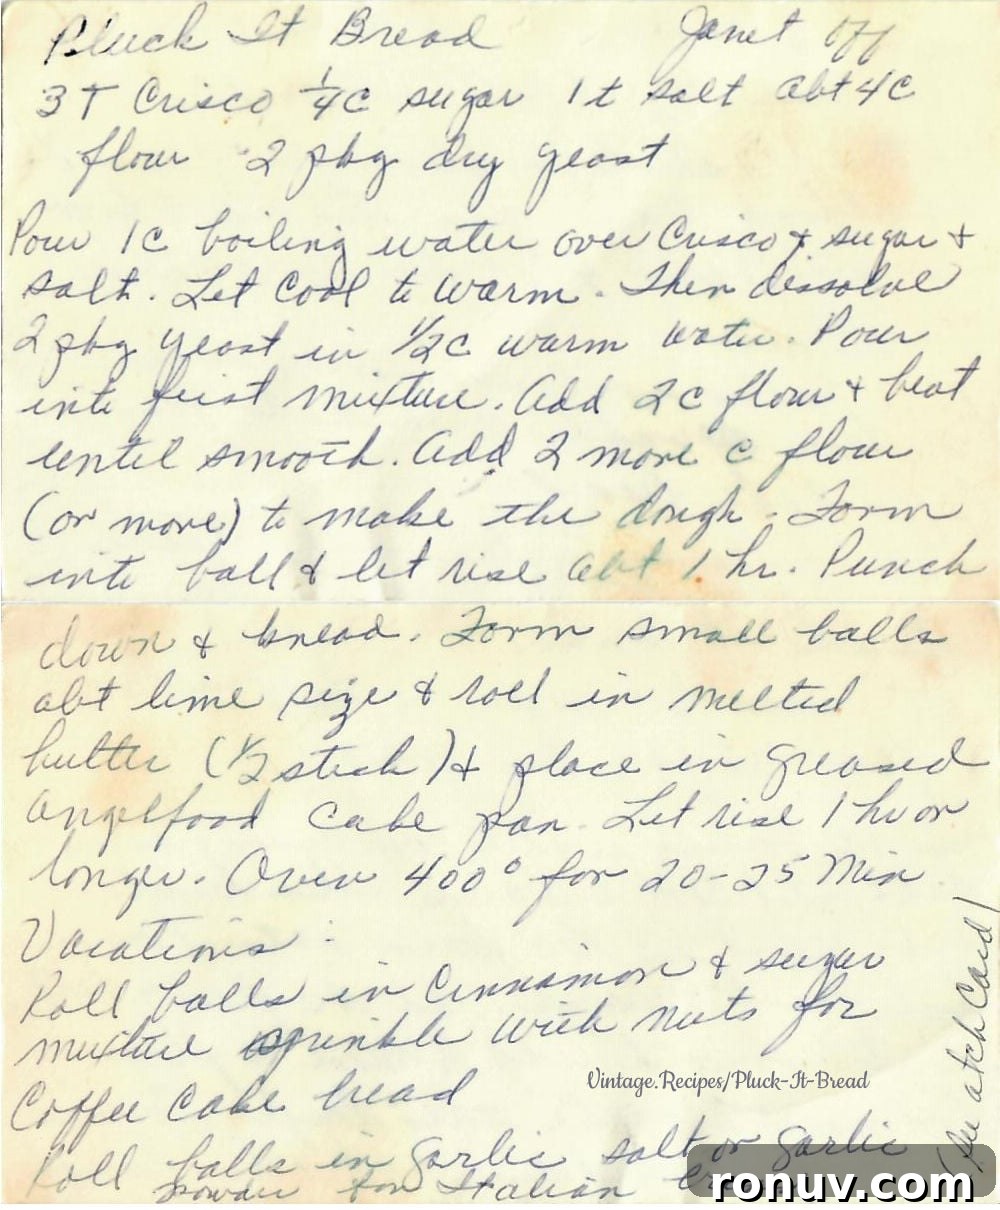 Pluck It Bread Janet
3 T Crisco 1/4 C sugar 1 t salt abt 4 C
flour 2 pkg dry yeast
Pour 1 C boiling water over Crisco & sugar &
salt. Let Cool to warm. Then dissolve
2 pkg yeast in 1/2 C warm water. Pour
into first mixture. Add 2 C flour & beat
until smooth. Add 2 more C flour
(or more) to make the dough. Form
into ball & let rise abt 1 hr. Punch
down & knead. Form small balls
abt lime size & roll in melted
butter (1/2 stick) & place in greased
angelfood cake pan. Let rise 1 hr or
longer. Oven 400° for 20-25 Min
Vacations:
Roll balls in Cinnamon & sugar
mixture sprinkle with nuts for
Coffee Cake bread
Roll balls in garlic salt or garlic
powder for Italian
(See atch Card)
Vintage.Recipes/Pluck-It-Bread
ronuv.com